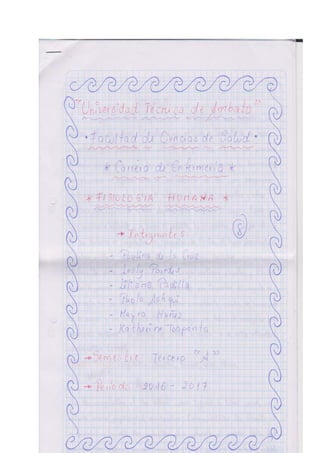 "Universidad Técnica de Ambato"
• Facultad de Ciencias de Salud •
* Carrera de Enfermería *
* FISIOLOGÍA HUMANA *
8
→ Integrantes
- Paulina de la Cruz
- Lesly Paredes
- Liliana Padilla
- Paola Ashqui
- Mayra Núñez
- Katherine Toapanta
→ Semestre: Tercero "A"
→ Período: 2016 - 2017